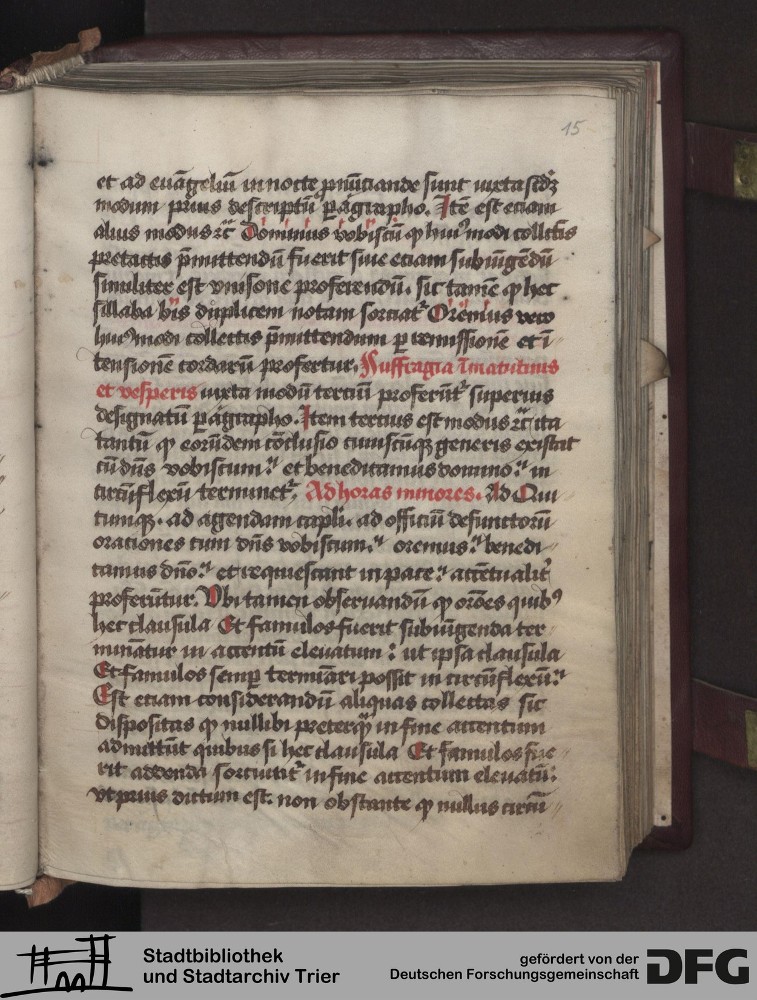 15
et ad euāgeliū in nocte ꝓnūciande sunt iuxta scd̄ꝫ
modum prius descriptū ꝑagrapho. Itē est eciam
alius modus ꝛc̄ Dominus vobiscū ꝙ huiꝰmodi collc̄tis
pretactis p̄mittendū fuerit siue eciam subiūgēdū
similiter est vnisone proferendū. sic tamē ꝙ hec
sillaba bis duplicem notam sorciat᷑ Orēmus vero
huiꝰmodi collectis p̄mittendum ꝑ remissionē et ī
tensionē cordarū profertur. Suffragia ī matutinis
et vesperis iuxta modū terciū proferūt᷑ superius
designatū ꝑagrapho. Item tercius est modus ꝛc̄ ita
tantū ꝙ eorūdem cōclusio cuiuscūqꝫ generis existat
cū dn̄s vobiscum et benedicamus domino in
circūflexū terminet᷑. Ad horas minores. Ad Qui
cumqꝫ. ad agendam capli. ad officiū defunctorū
orationes cum dn̄s vobiscum. oremus benedi
camus dn̄o et requiescant in pace accētualit̄
proferūtur. Vbi tamen obseruandū ꝙ orōes quibꝰ
hec clausula Et famulos fuerit subiūgenda ter
minātur in accentū eleuatum ut ipsa clausula
Et famulos semꝑ termināri possit in circūflexū
Est eciam considerandū aliquas collectas sic
dispositas ꝙ nullibi preterqꝫ in fine accentum
admittūt quibus si hec clausula Et famulos fue
rit addenda sorciunt᷑ in fine accentum eleuatū
vt prius dictum est. non obstante ꝙ nullus circū
Stadtbibliothek
und Stadtarchiv Trier
gefördert von der
Deutschen Forschungsgemeinschaft
DFG